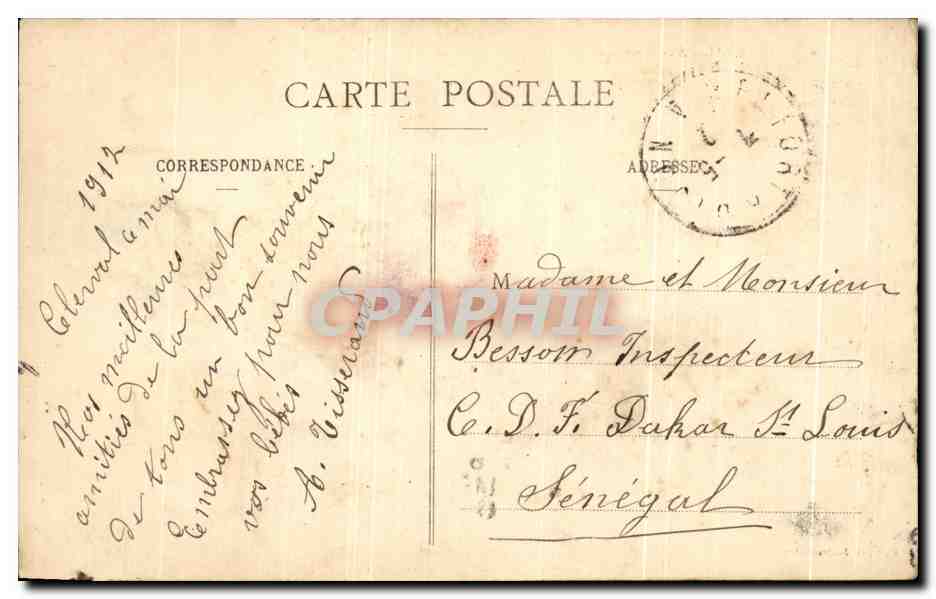 CARTE POSTALE
CORRESPONDANCE
ADRESSE
Clerval le mai 1912
Nos meilleures
amitiés de la part
de tous un bon souvenir
Embrassez pour nous
vos bébés
A. Tisserand
Madame et Monsieur
Besson Inspecteur
C. D. F. Dakar St Louis
Sénégal
CPAPHIL